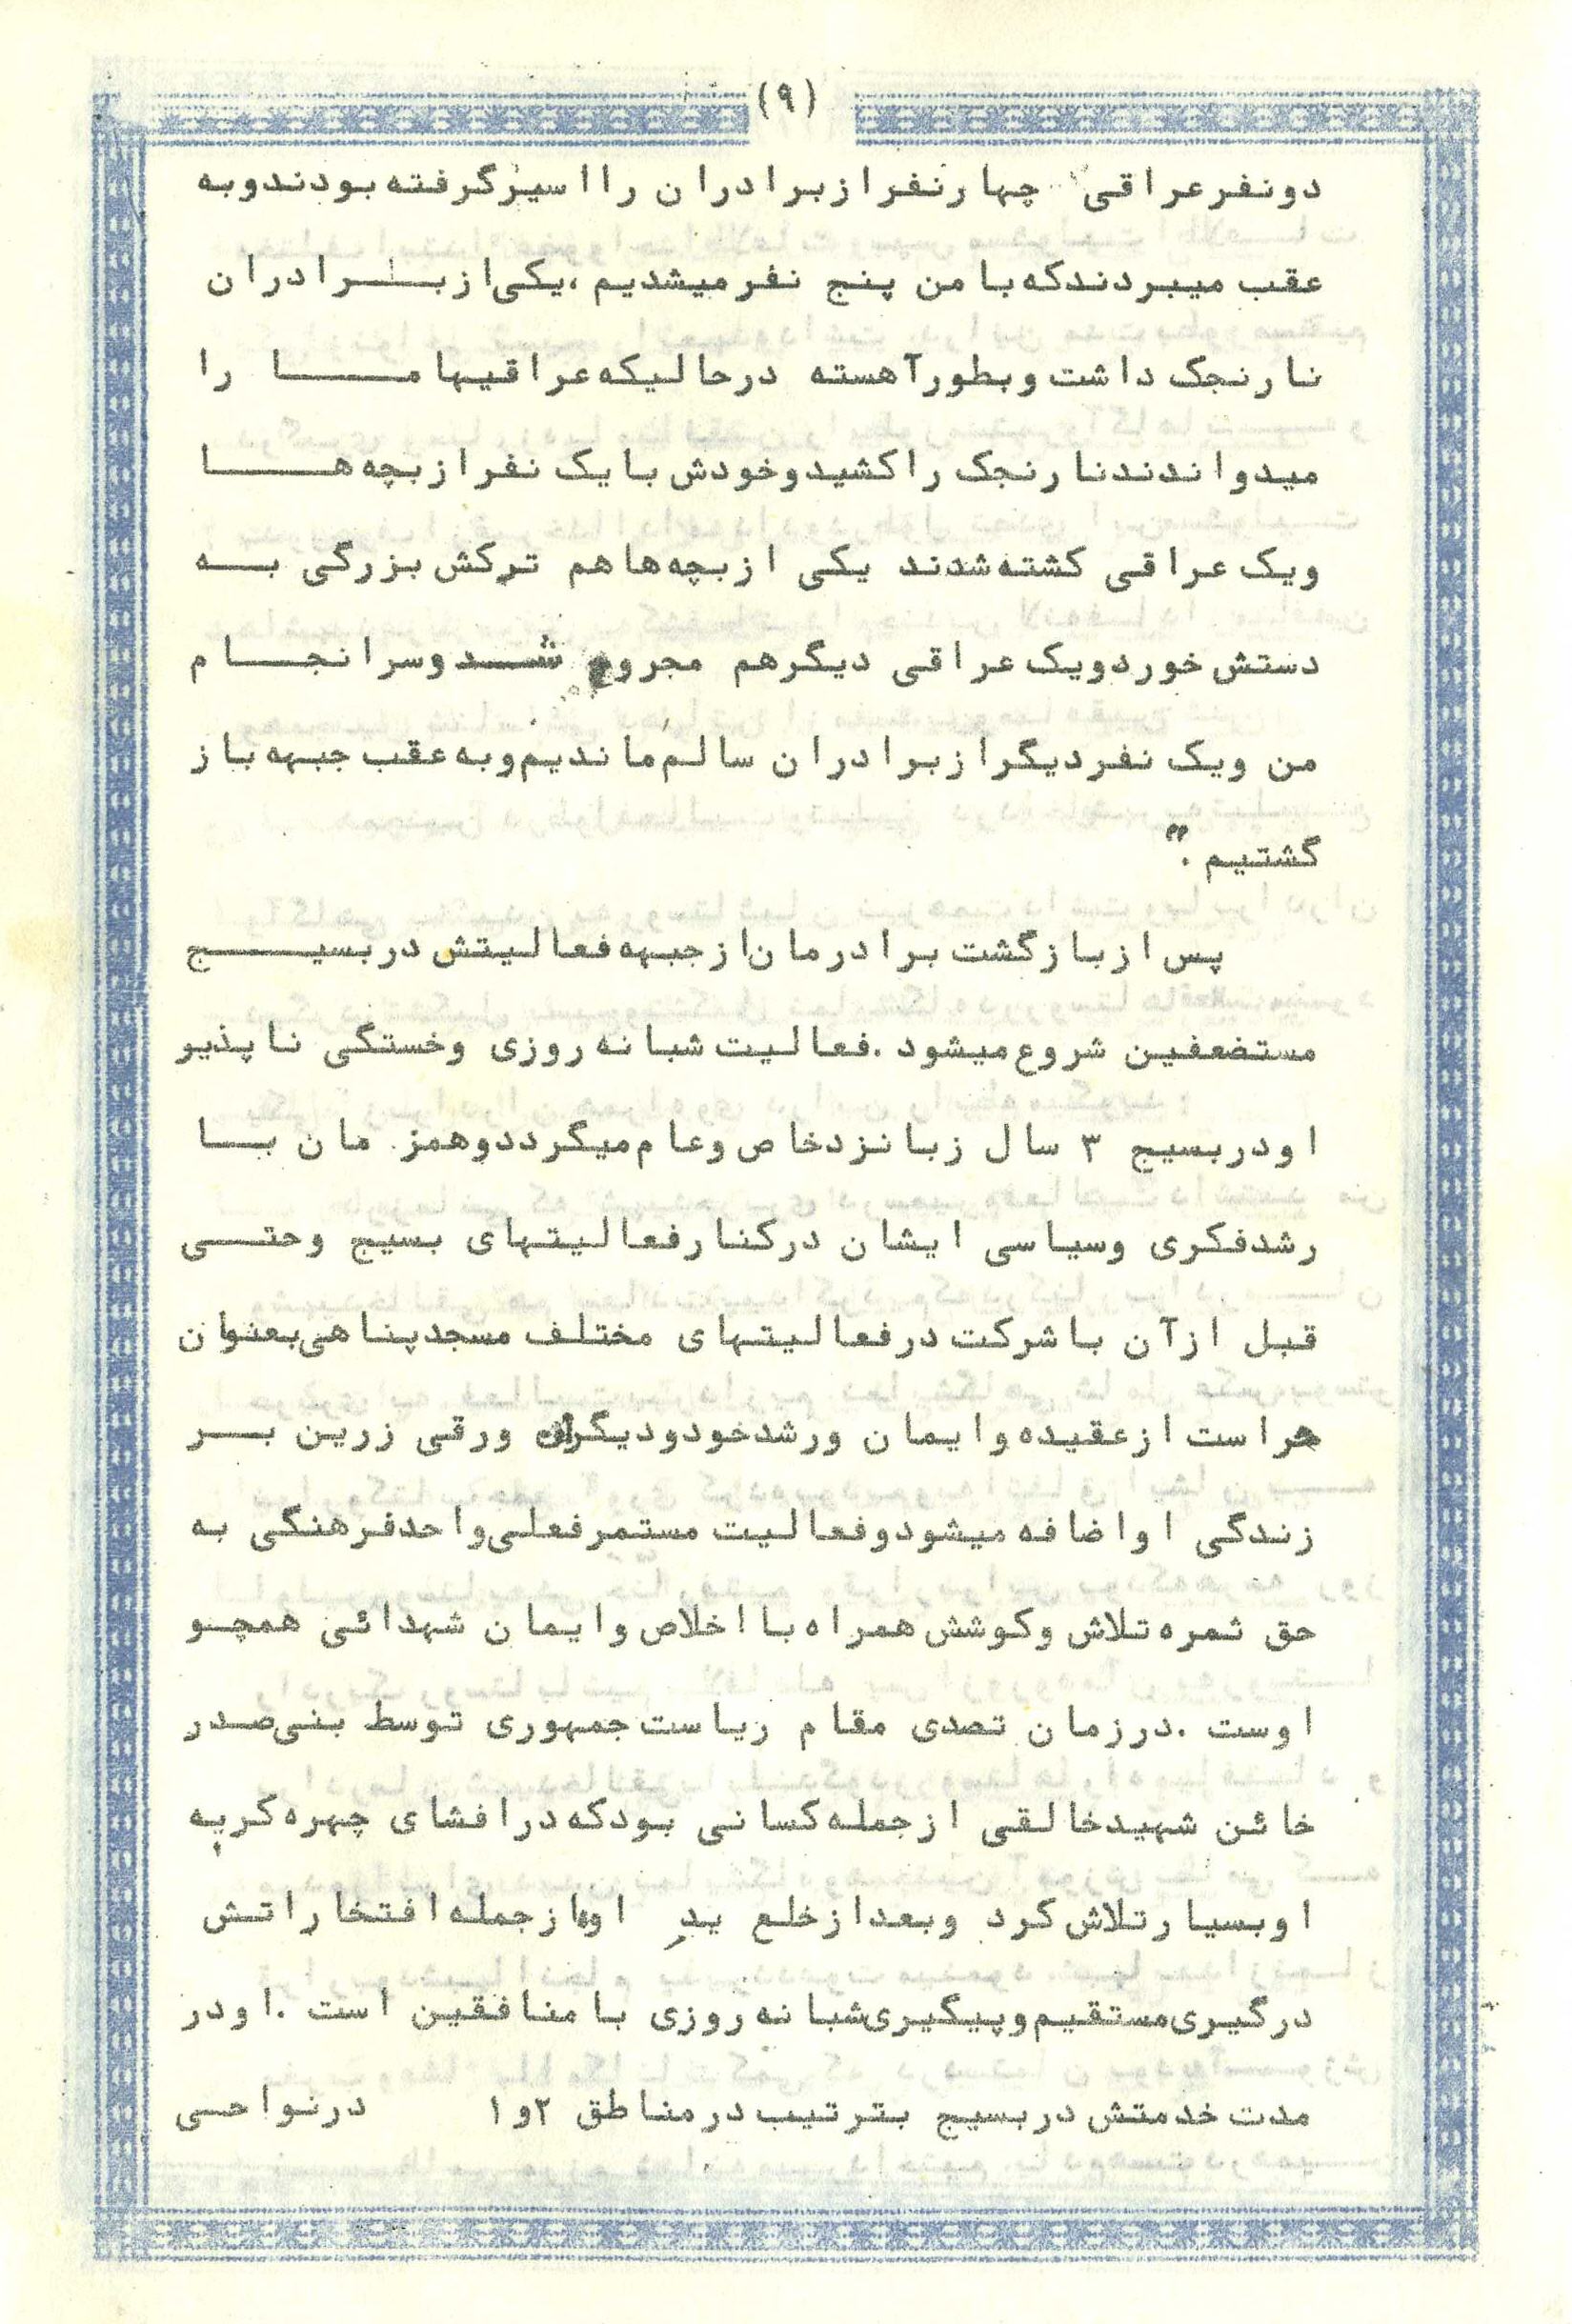 (۹)
دونفرعراقی چهارنفرازبرادران رااسیرگرفته‌بودندوبه
عقب میبردندکه‌بامن پنج نفرمیشدیم ،یکی‌ازبـــرادران
نارنجک داشت وبطورآهسته درحالیکه‌عراقیهامـــا را
میدواندندنارنجک راکشیدوخودش بایک نفرازبچه‌هـــا
ویک عراقی کشته‌شدند یکی ازبچه‌هاهم ترکش بزرگی بــه
دستش خوردویک عراقی دیگرهم مجروح شــدوسرانجــام
من ویک نفردیگرازبرادران سالم‌ماندیم‌وبه‌عقب جبهه‌باز
گشتیم ."
پس ازبازگشت برادرمان‌ازجبهه‌فعالیتش دربسیــــج
مستضعفین شروع‌میشود .فعالیت شبانه‌روزی وخستگی ناپذیر
اودربسیج ۳ سال زبانزدخاص وعام‌میگرددوهمز مان بــا
رشدفکری وسیاسی ایشان درکنارفعالیتهای بسیج وحتــی
قبل ازآن باشرکت درفعالیتهای مختلف مسجدپناهی‌بعنوان
حراست ازعقیده‌وایمان ورشدخودودیگران ورقی زرین بــر
زندگی اواضافه‌میشودوفعالیت مستمرفعلی‌واحدفرهنگی به
حق ثمره‌تلاش وکوشش همراه‌بااخلاص وایمان شهدائی همچــو
اوست .درزمان تصدی مقام ریاست‌جمهوری توسط بنی‌صــدر
خائن شهیدخالقی ازجمله‌کسانی بودکه‌درافشای چهره‌کریه
اوبسیارتلاش‌کرد وبعدازخلع ید اواز‌جمله‌افتخاراتــش
درگیری‌مستقیم‌وپیگیری‌شبانه‌روزی بامنافقین است .اودر
مدت خدمتش دربسیج بترتیب درمناطق ۲و۱ درنواحــی